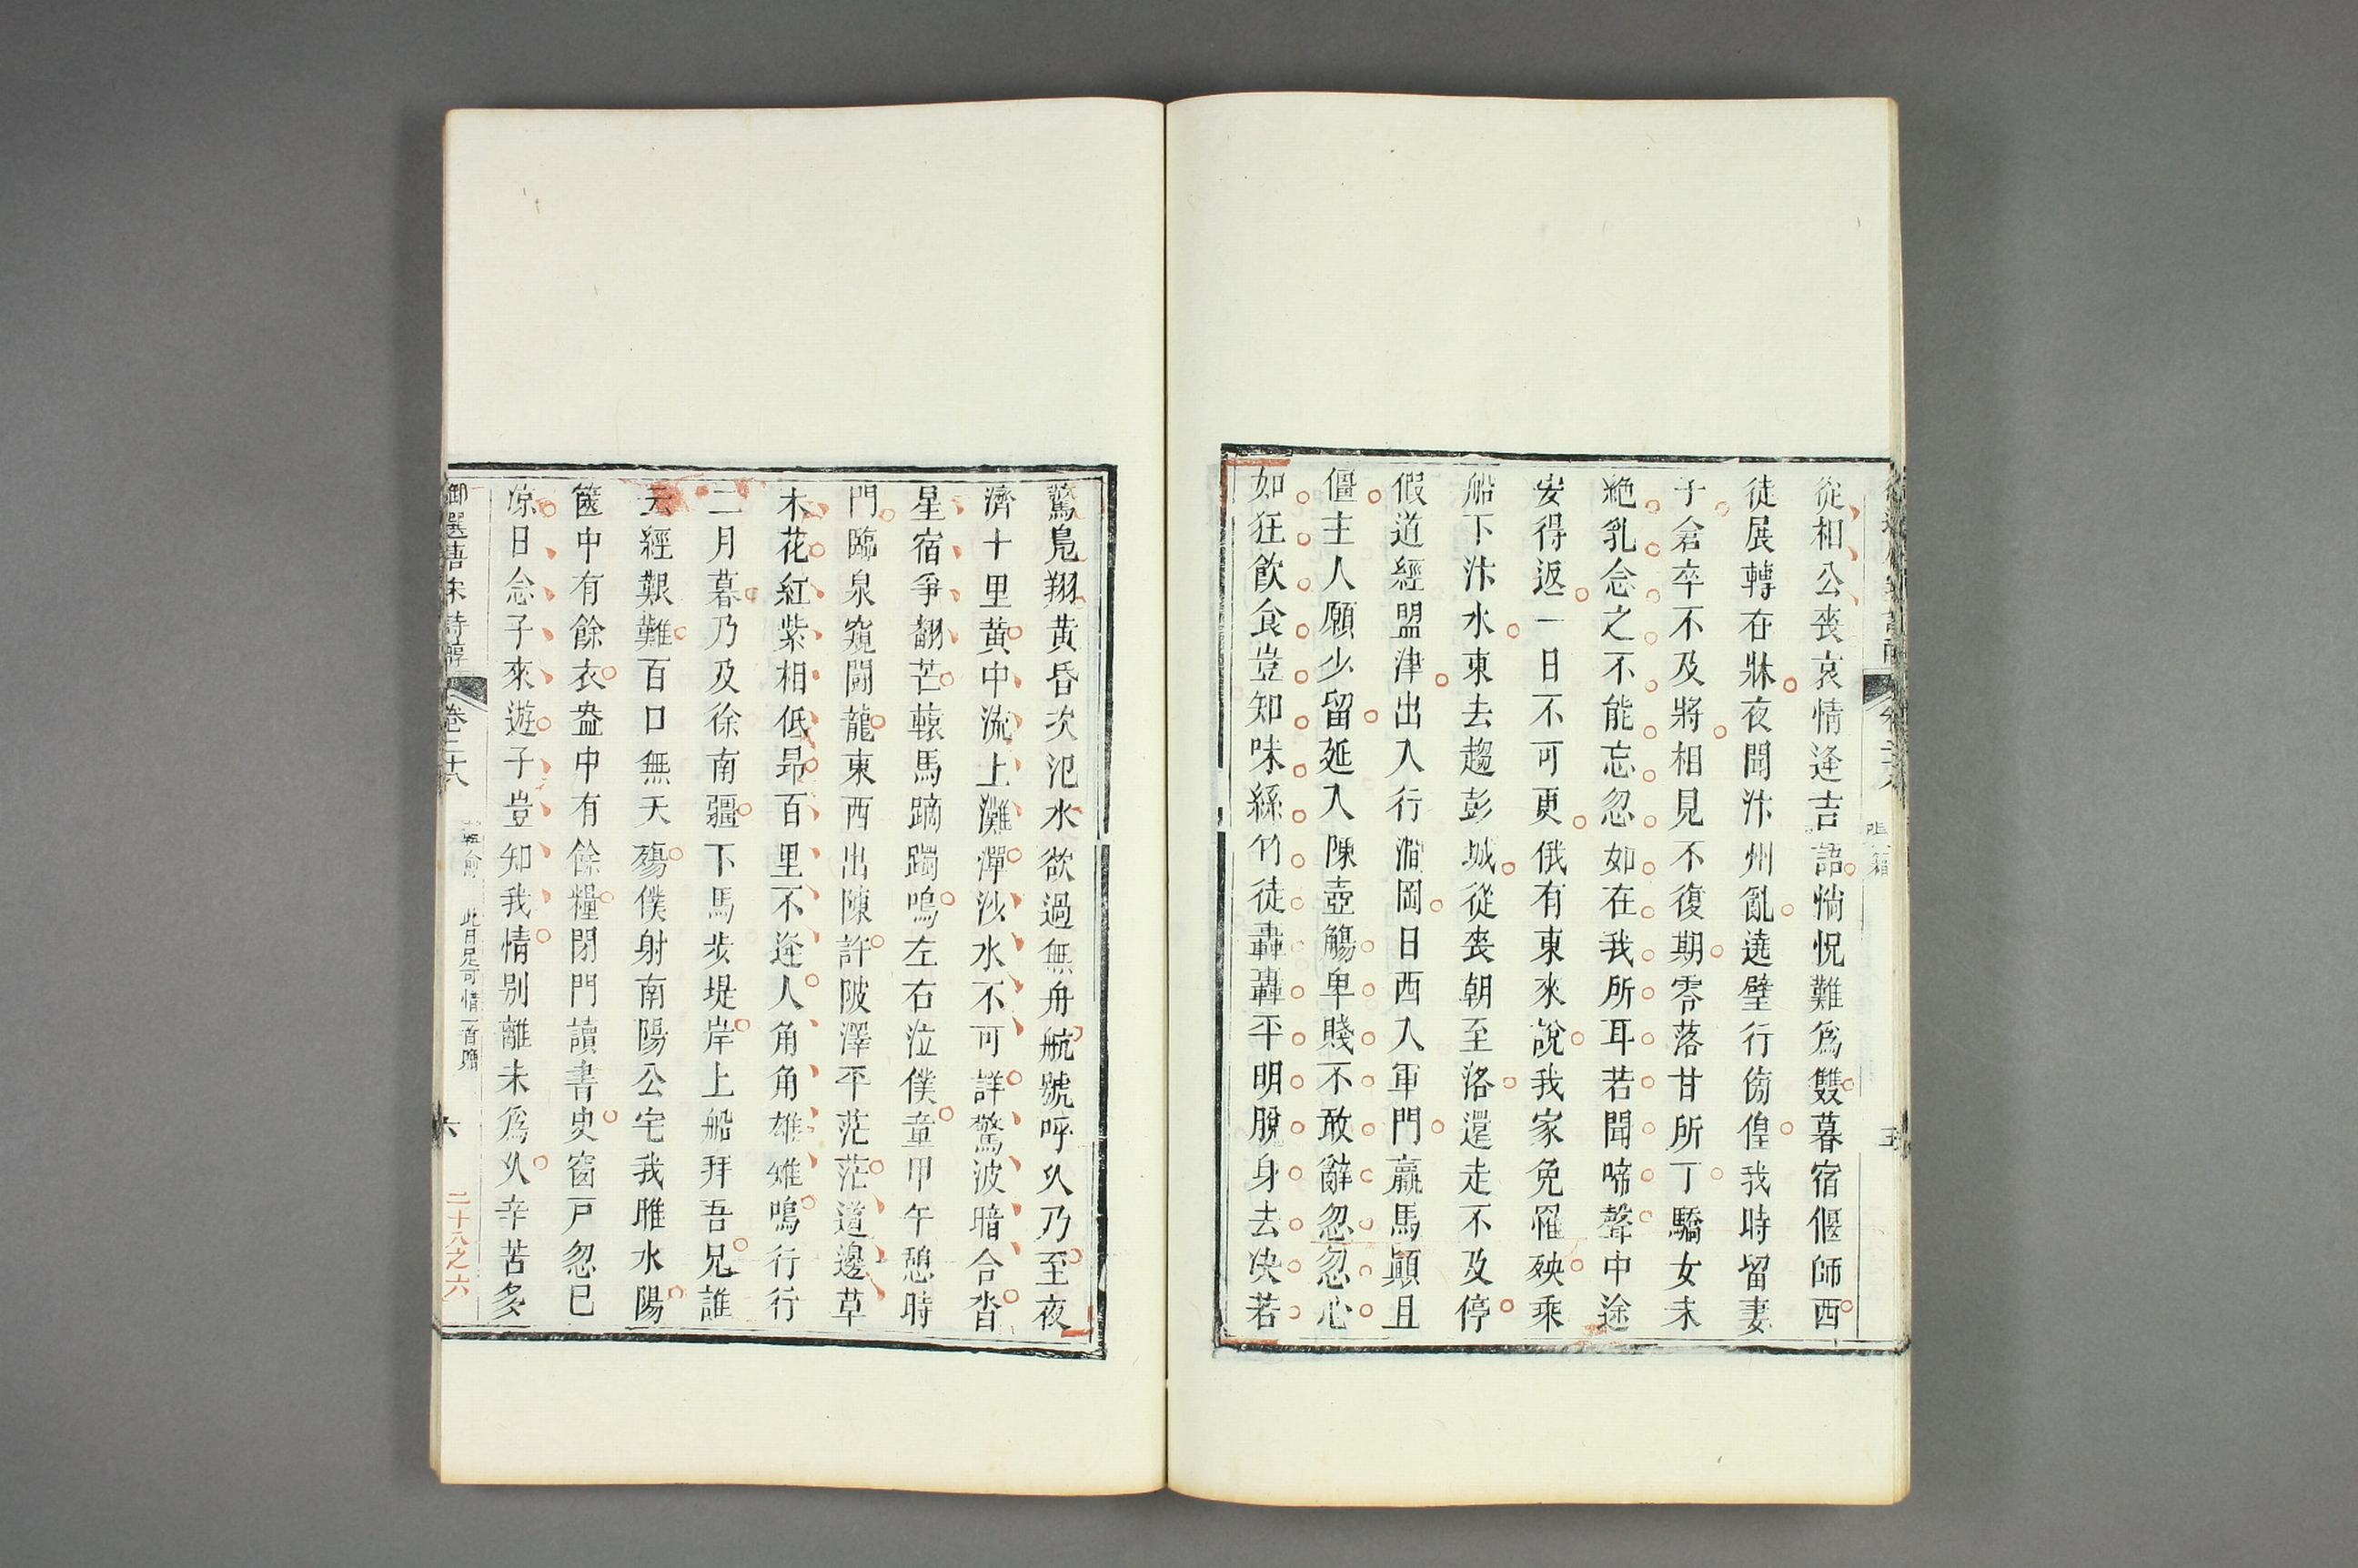 從相公喪哀情逢吉語惝怳難爲雙暮宿偃師西
徒展轉在牀夜聞汴州亂遶壁行傍偟我時留妻
子倉卒不及將相見不復期零落甘所丁驕女未
絶乳念之不能忘忽如在我所耳若聞啼聲中途
安得返一日不可更俄有東來說我家免罹殃乘
船下汴水東去趨彭城從喪朝至洛還走不及停
假道經盟津出入行澗岡日西入軍門羸馬顛且
僵主人願少留延入陳壺觴卑賤不敢辭忽忽心
如狂飲食豈知味絲竹徒轟轟平明脫身去决若
驚鳬翔黄昏次汜水欲過無舟航號呼久乃至夜
濟十里黄中流上灘潬沙水不可詳驚波暗合沓
星宿爭翻芒轅馬蹢躅鳴左右泣僕童甲午憩時
門臨泉窺鬭龍東西出陳許陂澤平茫茫道邊草
木花紅紫相低昂百里不逢人角角雄雉鳴行行
二月暮乃及徐南疆下馬步堤岸上船拜吾兄誰
云經艱難百口無夭殤僕射南陽公宅我睢水陽
篋中有餘衣盎中有餘糧閉門讀書史窗戸忽已
凉日念子來遊子豈知我情别離未爲久辛苦多
御選唐宋詩醇 卷二十八 韓愈 此日足可惜一首贈 六
二十八之六